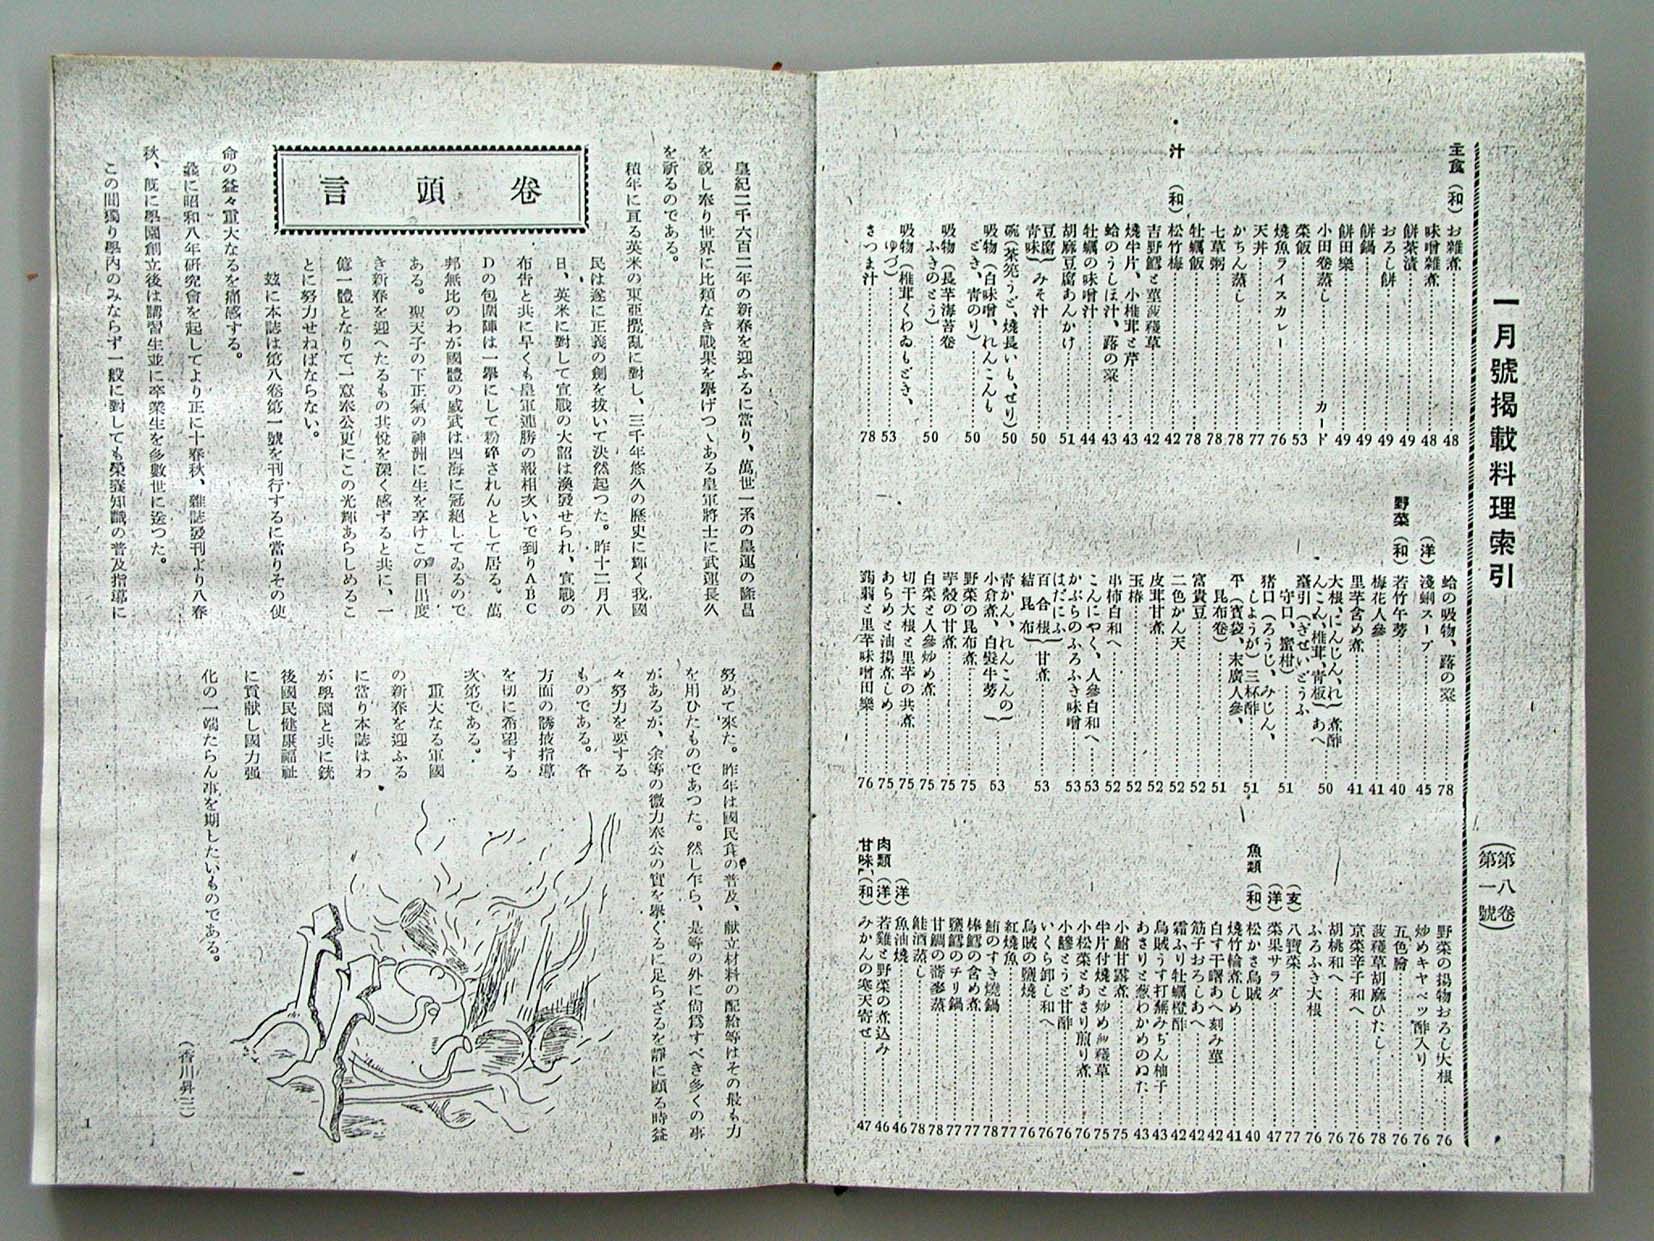 一月號揭載料理索引
(第八卷 第一號)
主食(和)
お雜煮 48
味噌雜煮 48
餅茶漬 49
おろし餅 49
餅鍋 49
餅田樂 49
小田卷蒸し カード
菜飯 53
燒魚ライスカレー 76
天丼 77
かちん蒸し 78
七草粥 78
牡蠣飯 78
汁(和)
松竹梅 42
吉野鱈と菫菠薐草 42
燒牛片、小椎茸と芹 43
蛤のうしほ汁、蕗の薹 43
牡蠣の味噌汁 44
胡麻豆腐あんかけ 51
豆腐 靑味 みそ汁 50
碗(茶筅うど、燒長いも、ぜり) 50
吸物(白味噌、れんこんもどき、靑のり) 50
吸物(長芋海苔卷 ふきのとう) 50
吸物(椎茸くわゐもどき、ゆづ) 53
さつま汁 78
蛤の吸物、蕗の薹 78
(洋)
淺蜊スープ 45
野菜(和)
若竹午蒡 40
梅花人參 41
里芋含め煮 41
大根、にんじん、れんこん、椎茸、靑板 煮酢あへ 50
臺引(ぎせいどうふ 守口、蜜柑) 51
猪口(ろうじ、みじん、しょうが)三杯酢 51
平(寶袋、末廣人參、昆布卷) 51
富貴豆 52
二色かん天 52
皮茸甘煮 52
玉椿 52
串柿白和へ 52
こんにやく、人參白和へ 53
かぶらのふろふき味噌 53
はだにふ 百合根 結昆布 甘煮 53
靑かん、れんこんの小倉煮、白髮牛蒡 53
野菜の昆布煮 75
芋殼の甘煮 75
白菜と人參炒め煮 75
切干大根と里芋の共煮 75
あらめと油揚煮しめ 75
蒟蒻と里芋味噌田樂 76
野菜の揚物おろし大根 76
炒めキャベツ酢入り 76
五色膾 76
菠薐草胡麻ひたし 78
京菜辛子和へ 76
胡桃和へ 76
ふろふき大根 76
(支)
八寶菜 77
(洋)
菜果サラダ 47
魚類(和)
松かさ烏賊 40
燒竹輪煮しめ 41
白す干曙あへ刻み菫 42
筋子おろしあへ 42
霜ふり牡蠣橙酢 42
烏賊うす打蕪みぢん柚子 43
あさりと葱わかめのぬた 43
小鮒甘露煮 75
牛片付燒と炒め菠薐草 75
小松菜とあさり煎り煮 76
小鰺とうど甘酢 76
いくら卸し和へ 76
烏賊の鹽燒 76
紅燒魚 77
鮪のすき燒鍋 78
棒鱈の含め煮 77
鹽鱈のチリ鍋 77
甘鯛の蕎麥蒸 78
鮭酒蒸し 78
(洋)
魚油燒 46
肉類(洋)
若雞と野菜の煮込み 46
甘味(和)
みかんの寒天寄せ 47
卷頭言
皇紀二千六百二年の新春を迎ふるに當り、萬世一系の皇運の隆昌
を祝し奉り世界に比類なき戰果を擧げつゝある皇軍將士に武運長久
を祈るのである。
積年に亙る英米の東亞攪亂に對し、三千年悠久の歷史に輝く我國
民は遂に正義の劍を拔いて決然起つた。昨十二月八
日、英米に對して宣戰の大詔は渙發せられ、宣戰の
布吿と共に早くも皇軍連勝の報相次いで到りABC
Dの包圍陣は一擧にして粉碎されんとして居る。萬
邦無比のわが國體の威武は四海に冠絕してゐるので
ある。聖天子の下正氣の神洲に生を享けこの目出度
き新春を迎へたるもの其悅を深く感ずると共に、一
億一體となりて一意奉公更にこの光輝あらしめるこ
とに努力せねばならない。
玆に本誌は第八卷第一號を刊行するに當りその使
命の益々重大なるを痛感する。
曩に昭和八年硏究會を起してより正に十春秋、雜誌發刊より八春
秋、旣に學園創立後は講習生並に卒業生を多數世に送つた。
この間獨り學內のみならず一般に對しても榮養知識の普及指導に
努めて來た。昨年は國民食の普及、献立材料の配給等はその最も力
を用ひたものであつた。然し乍ら、是等の外に尙爲すべき多くの事
があるが、余等の微力奉公の實を擧ぐるに足らざるを靜に顧る時益
々努力を要する
ものである。各
方面の誘掖指導
を切に希望する
次第である。
重大なる軍國
の新春を迎ふる
に當り本誌はわ
が學園と共に銃
後國民健康福祉
に貢献し國力强
化の一端たらん事を期したいものである。
(香川昇三)
1